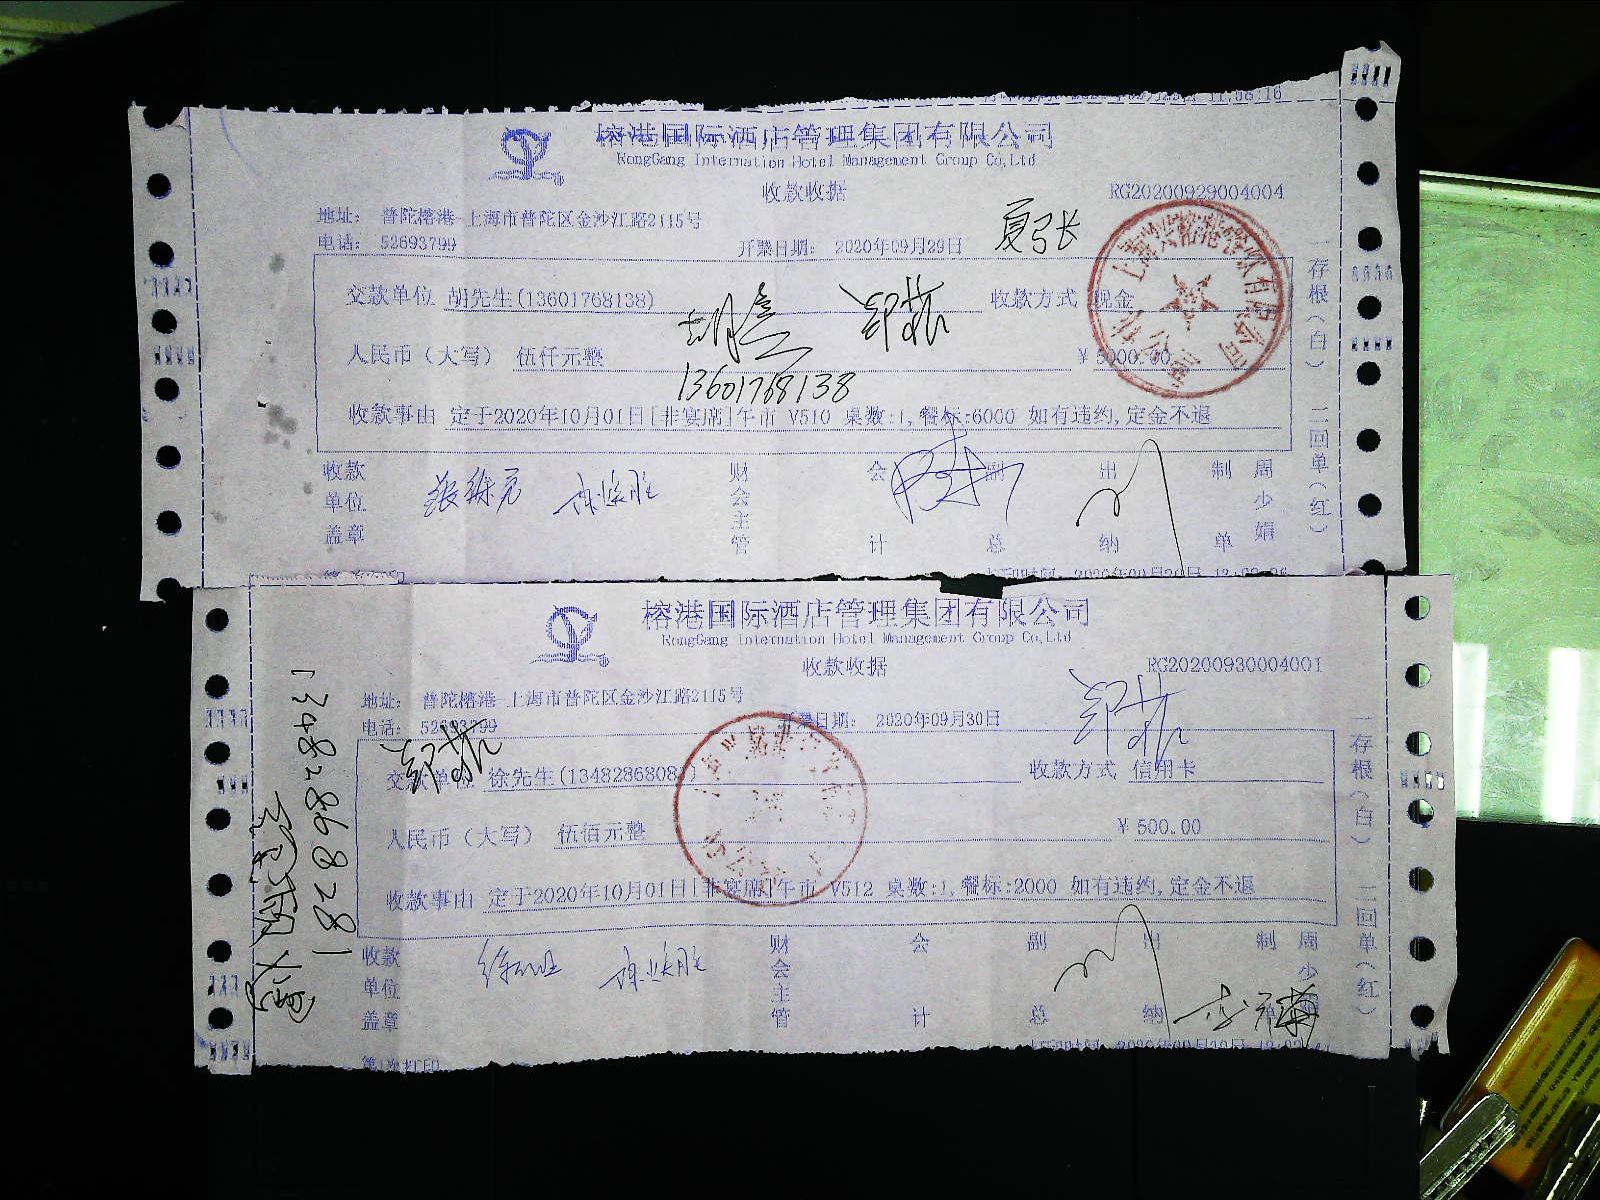 11:58:16
榕港国际酒店管理集团有限公司
RongGang Internation Hotel Management Group Co,Ltd
收款收据
RG20200929004004
地址： 普陀榕港 上海市普陀区金沙江路2115号
电话： 52693799 开票日期： 2020年09月29日
交款单位 胡先生(13601768138) 收款方式 现金
人民币（大写） 伍仟元整 ￥5000.00
13601768138
收款事由 定于2020年10月01日[非宴席]午市 V510 桌数:1,餐标:6000 如有违约,定金不退
收款单位盖章 财会主管 会计 副总 出纳 制单 周少娟
一存根（白） 二回单（红）
榕港国际酒店管理集团有限公司
RongGang Internation Hotel Management Group Co,Ltd
收款收据
RG20200930004001
地址： 普陀榕港 上海市普陀区金沙江路2115号
电话： 52693799 开票日期： 2020年09月30日
郑
交款单位 徐先生(13482868081) 收款方式 信用卡
人民币（大写） 伍佰元整 ￥500.00
收款事由 定于2020年10月01日[非宴席]午市 V512 桌数:1,餐标:2000 如有违约,定金不退
收款单位盖章 财会主管 会计 副总 出纳 制单 周少
一存根（白） 二回单（红）